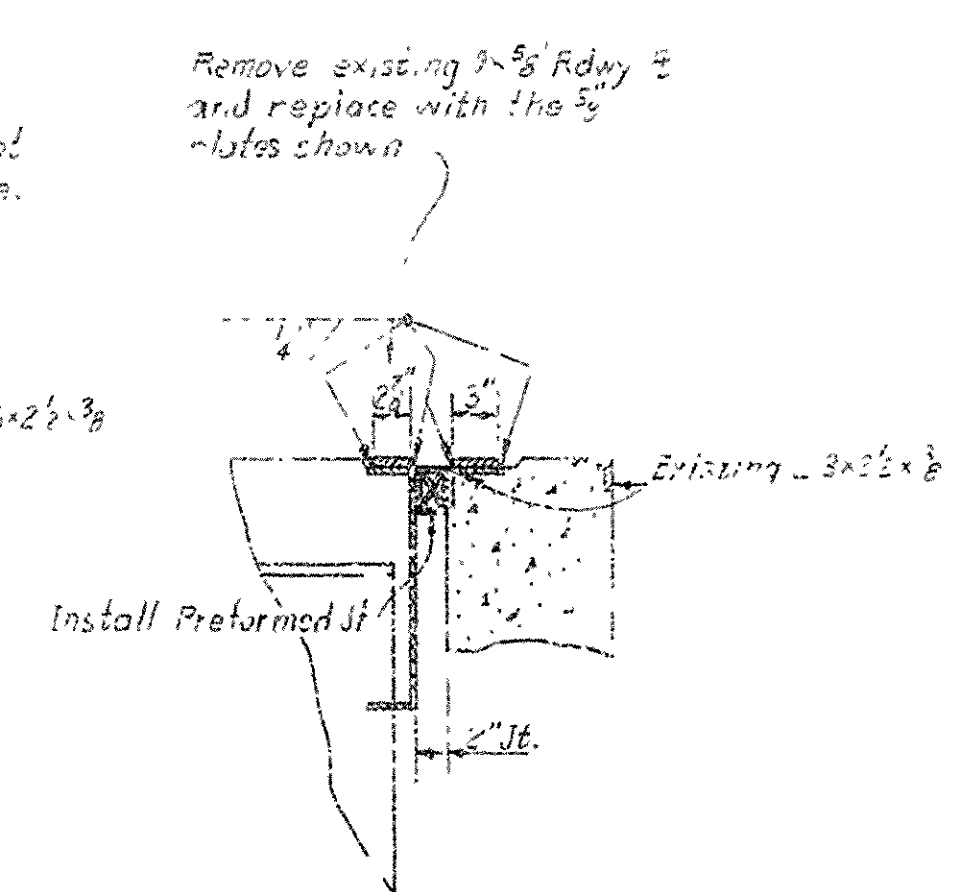 Remove existing 9×5/8" Rdwy ℄
and replace with the 5/8"
plates shown
1/4
2 7/8"
3"
×2 1/2×3/8
Existing
Install Preformed Jt
2" Jt.